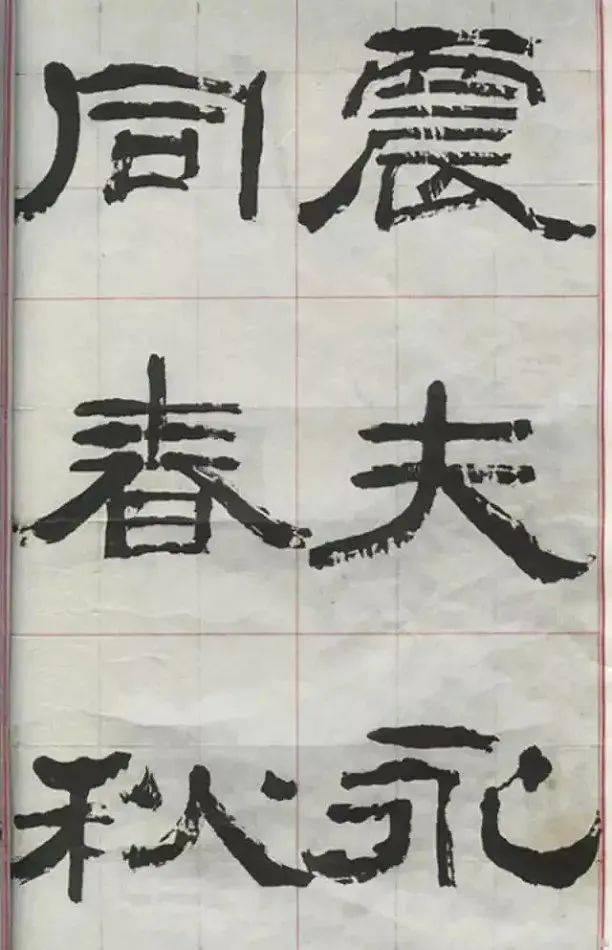 震夫永
同春秋